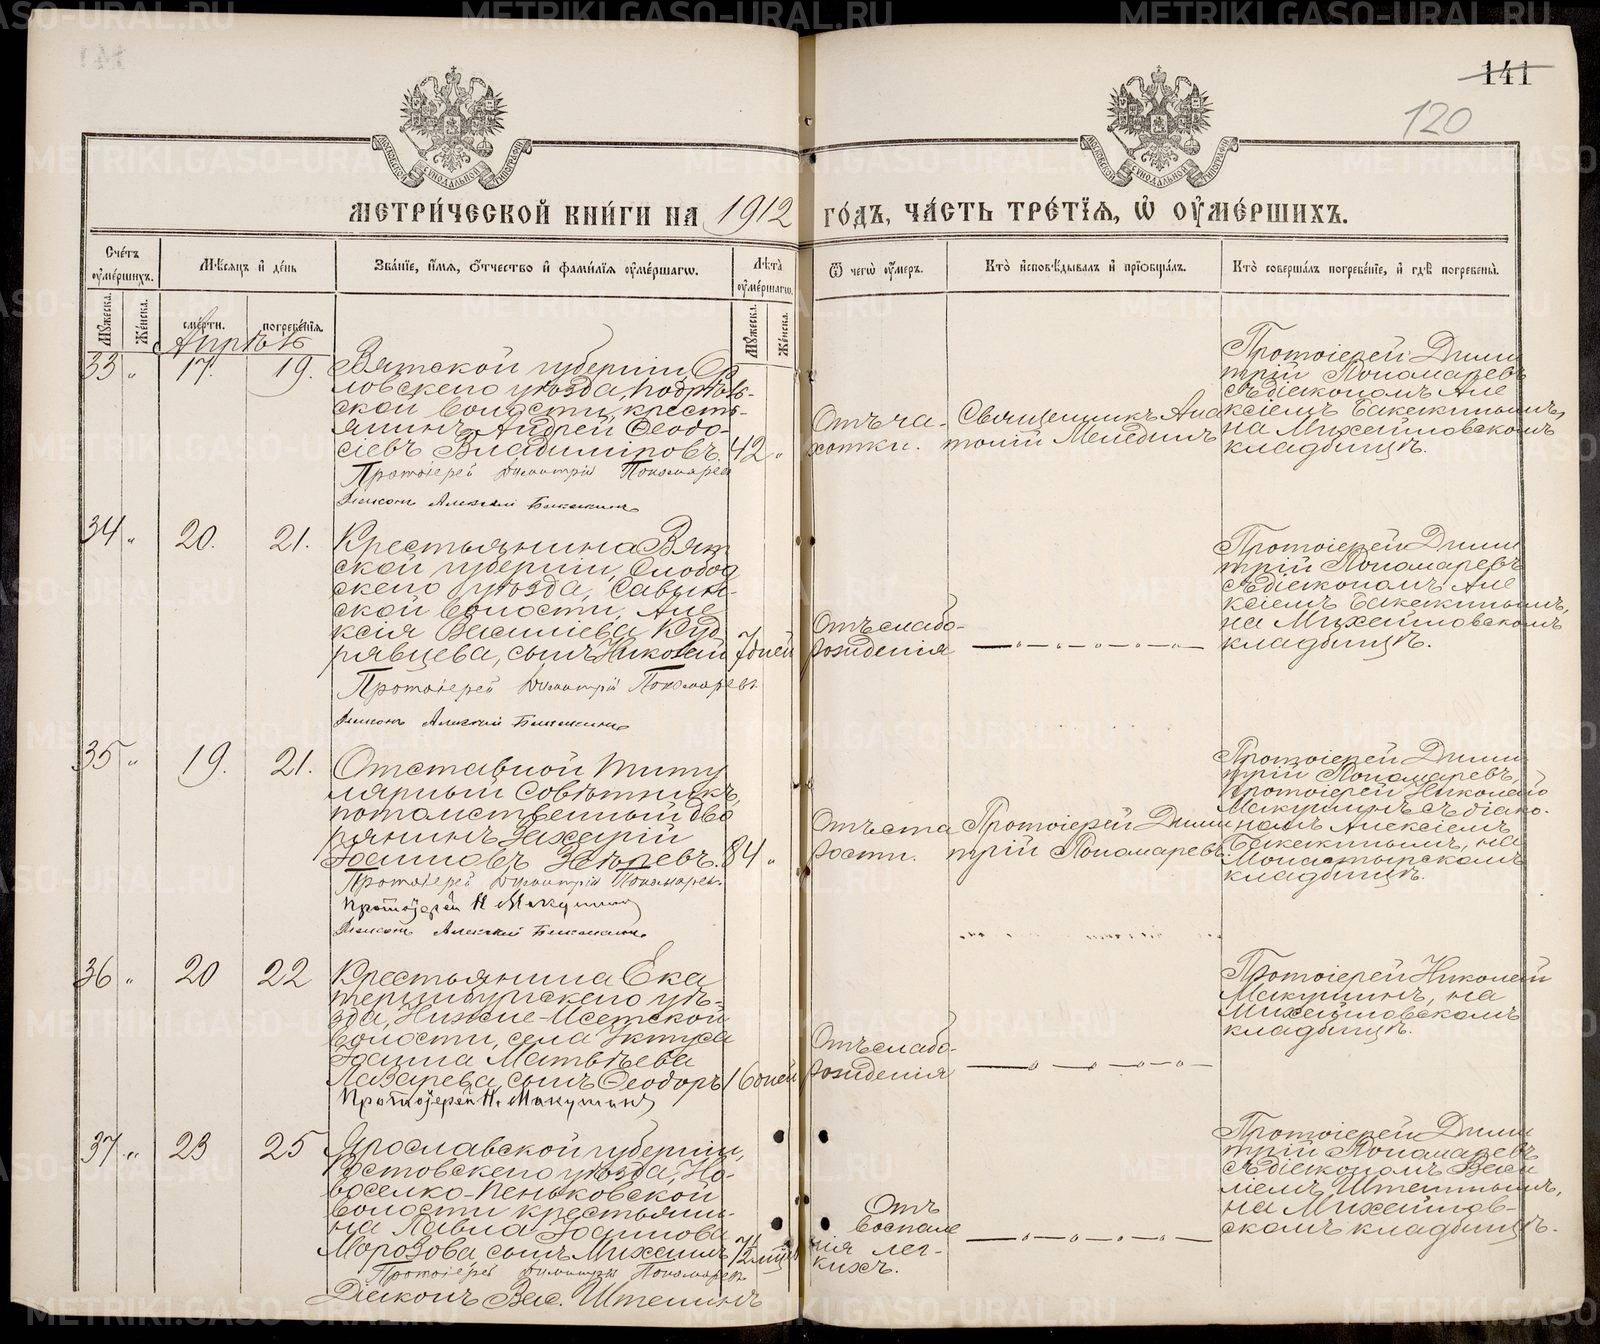 141
120
МЕТРИ́ЧЕСКОЙ КНИ́ГИ НА 1912 ГО́ДЪ, ЧА́СТЬ ТРЕ́ТІѦ, Ѡ҆ ОУ҆МЕ́РШИХЪ.
Сче́тъ оумершихъ.
Мѣсяцъ и день
Зва́ніе, и́мя, о́тчество и фами́лія оуме́ршагѡ.
Лѣта оуме́ршагѡ.
Ѿ чегѡ оу́меръ.
Кто̀ и҆сповѣдывалъ и҆ прїѻбща́лъ.
Кто̀ соверша́лъ погребе́ніе, и҆ гдѣ̀ погребены̀.
Мꙋжеска.
Женска.
сме́рти.
погребе́нїѧ.
Мꙋжеска.
Женска.
Апрѣль
33 „ 17. 19.
Вятской губерніи, Ор
ловскаго уѣзда, Подрѣль-
ской волости, кресть-
янинъ Андрей Ѳеодо-
сіевъ Владиміровъ. 42 „
Протоіерей Димитрій Пономаревъ
Діаконъ Алексій Бакакинъ
Отъ ча-
хотки.
Священникъ Ана
толій Мелединъ
Протоіерей Дими
трій Пономаревъ
съ діакономъ Але
ксіемъ Бакакинымъ,
на Михайловскомъ
кладбищѣ.
34 „ 20. 21.
Крестьянина Вят
ской губерніи, Слобод
ского уѣзда,
ской волости, Але
ксія Васильева Куд
рявцева, сынъ Николай 7 дней
Протоіерей Димитрій Пономаревъ
Діаконъ Алексій Бакакинъ
Отъ слабо-
рожденія
Протоіерей Дими
трій Пономаревъ
съ діакономъ Але
ксіемъ Бакакинымъ,
на Михайловскомъ
кладбищѣ.
35 „ 19. 21.
Отставной титу
лярный совѣтникъ,
потомственный дво
рянинъ Захарій
Іоанновъ 84 „
Протоіерей Димитрій Пономаревъ
Протоіерей Н. Макушинъ
Діаконъ Алексій Бакакинъ
Отъ ста
рости.
Протоіерей Дими
трій Пономаревъ
Протоіерей Дими
трій Пономаревъ,
Протоіерей Николай
Макушинъ съ діако-
номъ Алексіемъ
Бакакинымъ, на
Монастырскомъ
кладбищѣ.
36 „ 20 22
Крестьянина Ека
теринбургскаго уѣ-
зда, Нижне-Исетской
волости, села Уктуса
Іоанна Матвѣева
Лазарева, сынъ Ѳеодоръ 16 дней
Протоіерей Н. Макушинъ
Отъ слабо-
рожденія
Протоіерей Николай
Макушинъ, на
Михайловскомъ
кладбищѣ.
37 „ 23 25
Ярославской губерніи,
Ростовскаго уѣзда, Но-
воселко-Пеньковской
волости крестьяни-
на Павла Іоаннова
Морозова сынъ Михаилъ
Протоіерей Димитрій Пономаревъ
Діаконъ Вас. Штенинъ
Отъ
воспале
нія лег-
кихъ.
Протоіерей Дими
трій Пономаревъ
съ діакономъ Васи
ліемъ Штенинымъ,
на Михайлов-
скомъ кладбищѣ.